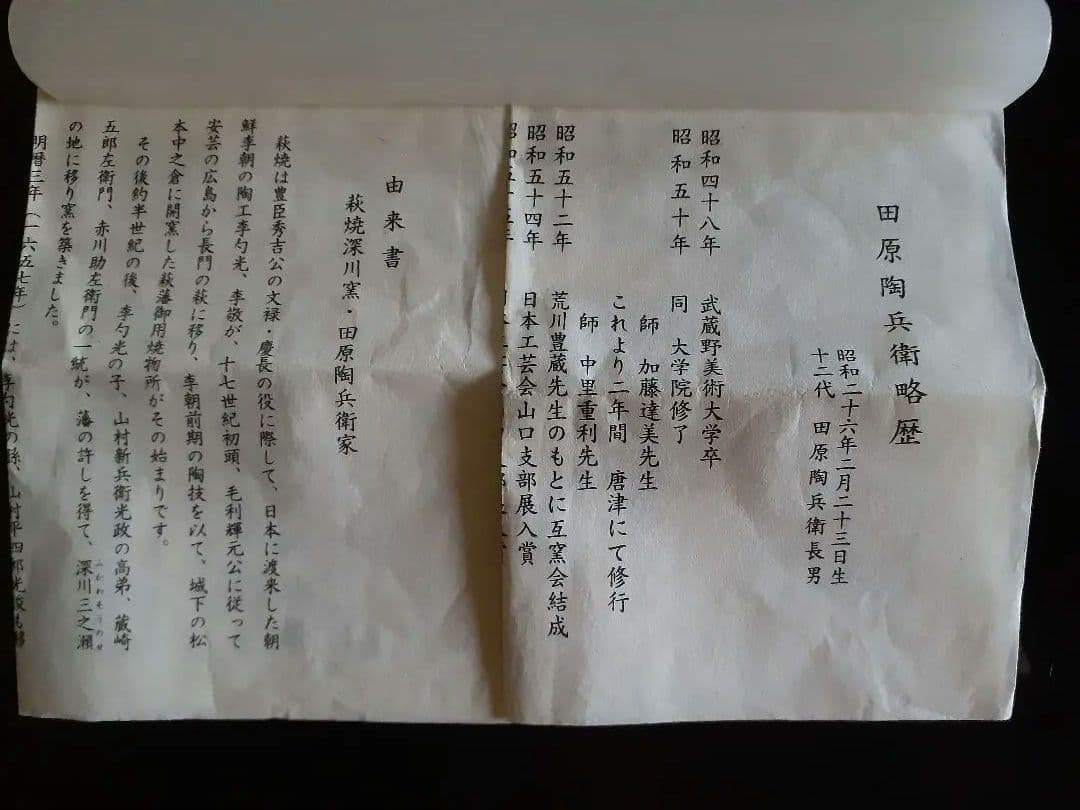 田原陶兵衛略歴
昭和二十六年二月二十三日生
十二代 田原陶兵衛長男
昭和四十八年 武蔵野美術大学卒
昭和五十年 同 大学院修了
師 加藤達美先生
これより二年間 唐津にて修行
師 中里重利先生
昭和五十二年 荒川豊蔵先生のもとに互窯会結成
昭和五十四年 日本工芸会山口支部展入賞
昭和五十五年
由来書
萩焼深川窯・田原陶兵衛家
萩焼は豊臣秀吉公の文禄・慶長の役に際して、日本に渡来した朝
鮮李朝の陶工李勺光、李敬が、十七世紀初頭、毛利輝元公に従って
安芸の広島から長門の萩に移り、李朝前期の陶技を以て、城下の松
本中之倉に開窯した萩藩御用焼物所がその始まりです。
その後約半世紀の後、李勺光の子、山村新兵衛光政の高弟、蔵崎
五郎左衛門、赤川助左衛門の一統が、藩の許しを得て、深川三之瀬
ふかわそうのせ
の地に移り窯を築きました。
明暦三年（一六五七年）には、李勺光の孫、山村平四郎光俊も